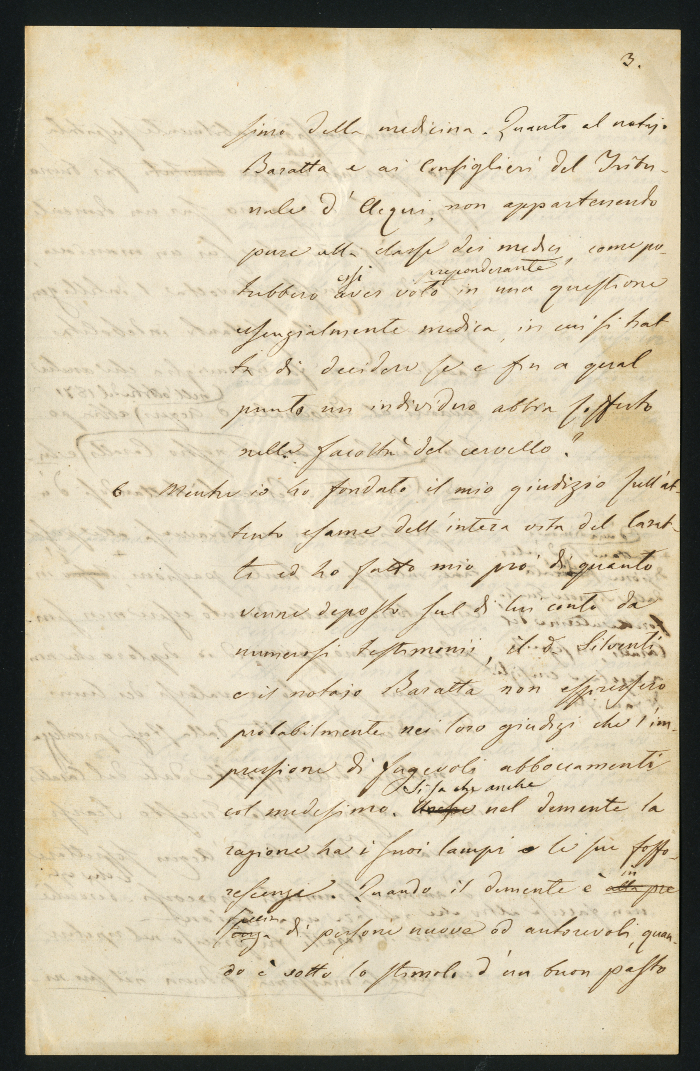 3.
simo della medicina. Quanto al notajo
Baratta e ai Consiglieri del Tribu-
nale d'Acqui, non appartenendo
pure alla classe dei medici, come po-
trebbero essi aver voto preponderante in una questione
essenzialmente medica, in cui si trat
ta di decidere se e fin a qual
punto un individuo abbia sofferto
nelle facoltà del cervello?
6 Mentre io ho fondato il mio giudizio sull'at-
tento esame dell'intera vita del
ti ed ho fatto mio prò di quanto
venne deposto sul di lui conto da
numerosi testimonii, il d. Silventi
e il notajo Baratta non espressero
probabilmente nei loro giudizi che l'im-
pressione di fugevoli abboccamenti
col medesimo. Si sa che anche nel demente la
ragione ha i suoi lampi e le sue fosfo-
rescenze. Quando il demente è in alla pre
faccia senza di persone nuove od autorevoli, quan-
do è sotto lo stimolo d'un buon pasto